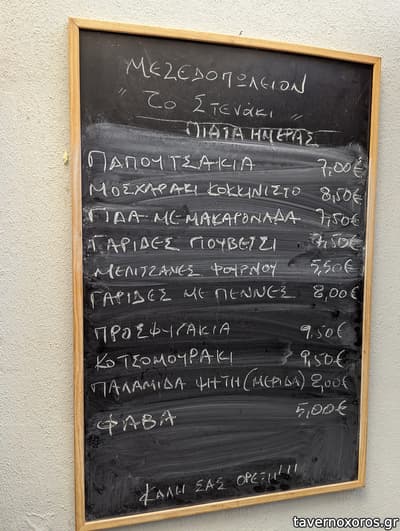 ΜΕΖΕΔΟΠΩΛΕΙΟΝ
"ΤΟ ΣΤΕΝΑΚΙ"
ΠΙΑΤΑ ΗΜΕΡΑΣ
ΠΑΠΟΥΤΣΑΚΙΑ 7,00€
ΜΟΣΧΑΡΑΚΙ ΚΟΚΚΙΝΙΣΤΟ 8,50€
ΓΙΔΑ ΜΕ ΜΑΚΑΡΟΝΑΔΑ 7,50€
ΓΑΡΙΔΕΣ ΓΙΟΥΒΕΤΣΙ 7,50€
ΜΕΛΙΤΖΑΝΕΣ ΦΟΥΡΝΟΥ 5,50€
ΓΑΡΙΔΕΣ ΜΕ ΠΕΝΝΕΣ 8,00€
ΠΡΟΣΦΥΓΑΚΙΑ 9,50€
ΚΟΤΣΟΜΟΥΡΑΚΙ 9,50€
ΠΑΛΑΜΙΔΑ ΨΗΤΗ (ΜΕΡΙΔΑ) 8,00€
ΦΑΒΑ 5,00€
ΚΑΛΗ ΣΑΣ ΟΡΕΞΗ!!!!
tavernoxoros.gr